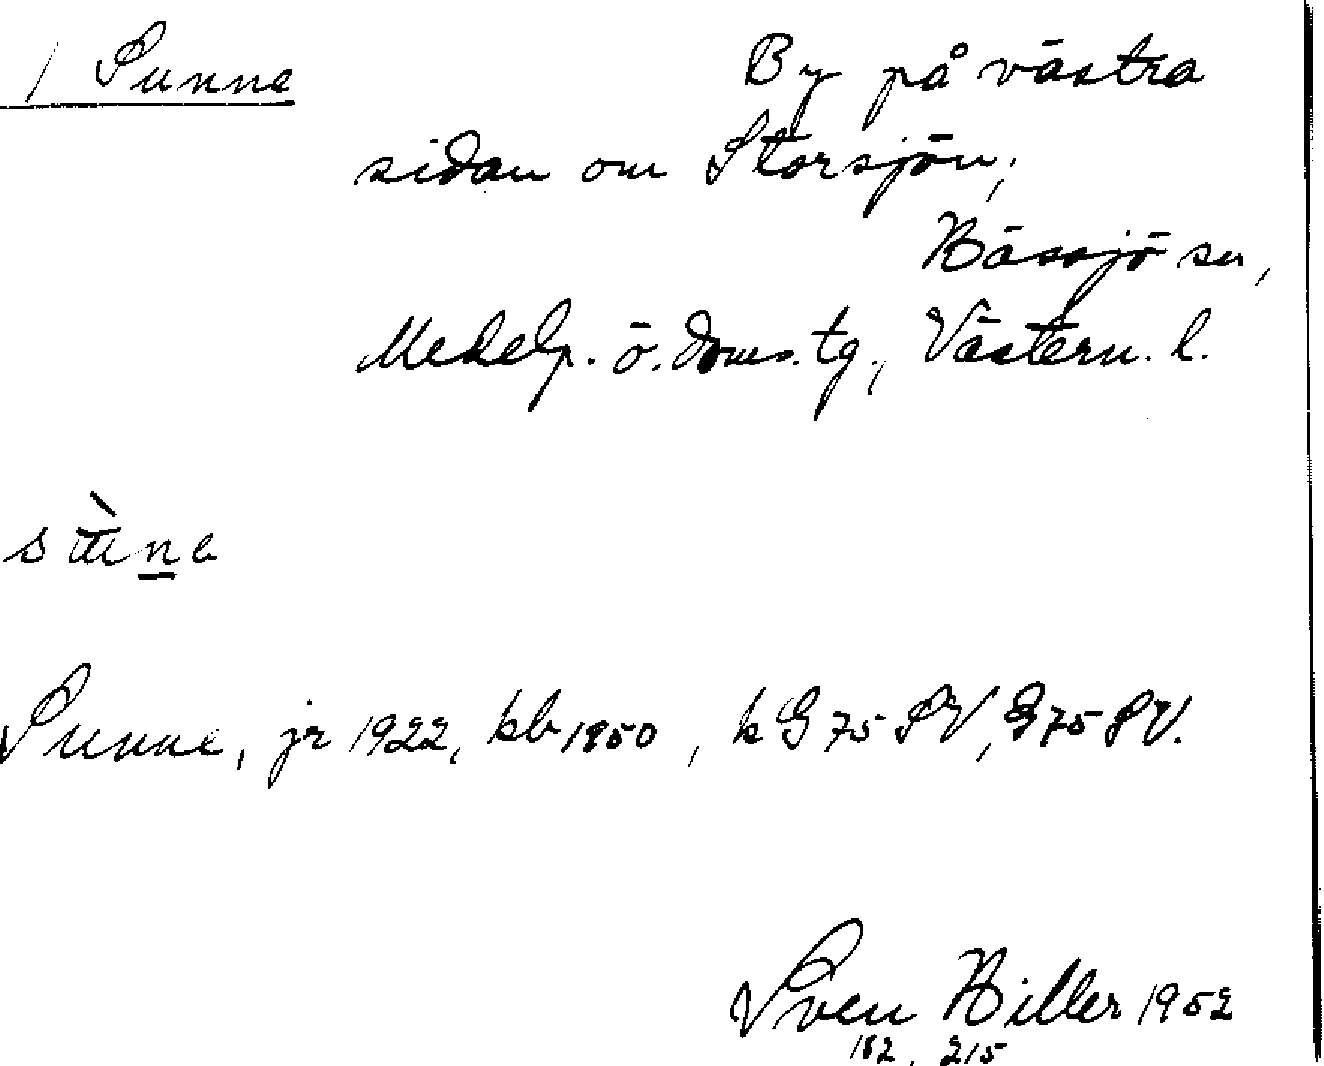 / Sunne
By på västra
sidan om Storsjön,
Hässjö sn,
Medelp. ö. doms. tg., Västern. l.
Sunne, jr 1922, kb 1950, k G 75 SV, G 75 SV.
Sven Hiller 1952
182. 215